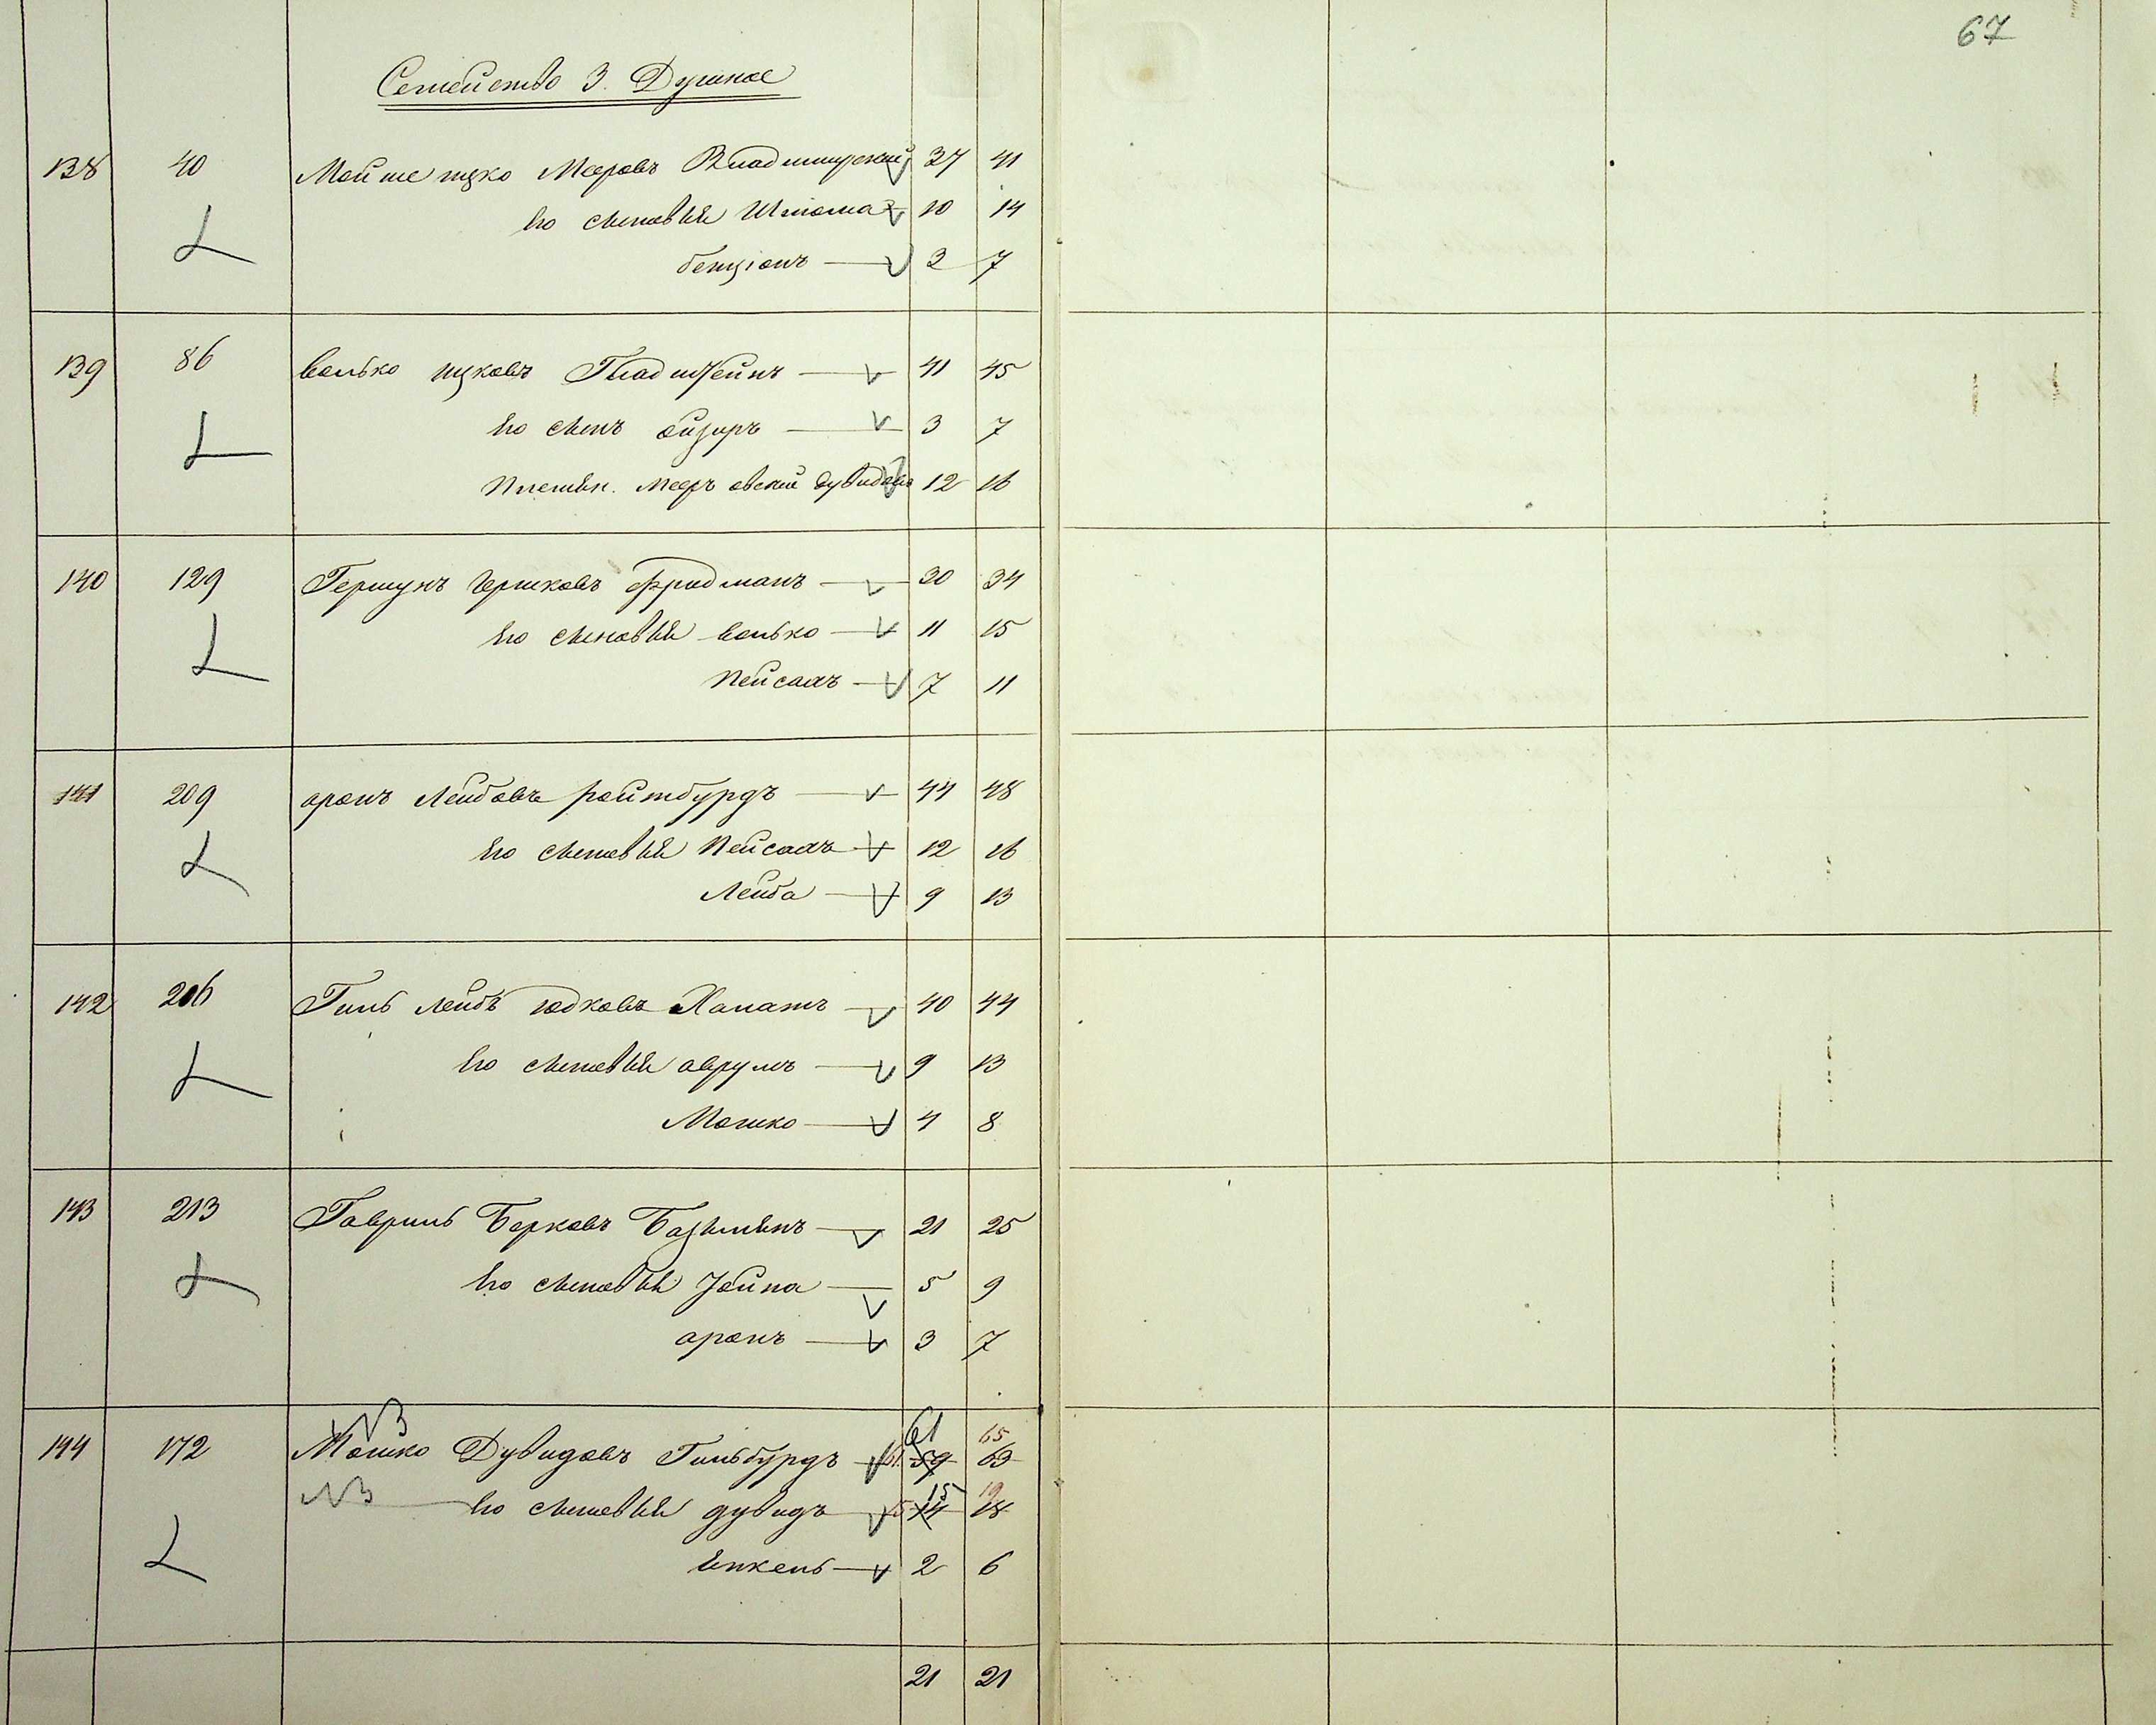 67
Семейство 3. Душное
138 40 Мойше ицко Мееровъ Владимирский 37 41
Его сыновья Шлиома 10 14
бенціонъ 3 7
139 86 Волько ицковъ Гладштейнъ 41 45
Его сынъ ойзиръ 3 7
Племян. Мееръ овсей Дувидовъ 12 16
140 129 Гершунъ Гершковъ Фридманъ 30 34
Его сыновья Волько 11 15
Пейсахъ 7 11
141 209 аронъ Лейбовъ ройтбурдъ 44 48
Его сыновья Пейсахъ 12 16
Лейба 9 13
142 206 Гиль Лейбъ юдковъ Халатъ 40 44
Его сыновья аврумъ 9 13
Мошко 4 8
143 213 Гавриль Берковъ 21 25
Его сыновья Іойна 5 9
аронъ 3 7
NB 61 65
144 172 Мошко Дувидовъ Гильбурдъ 61 59 63
NB 15 19
Его сыновья дувидъ 15 14 18
Янкель 2 6
21 21